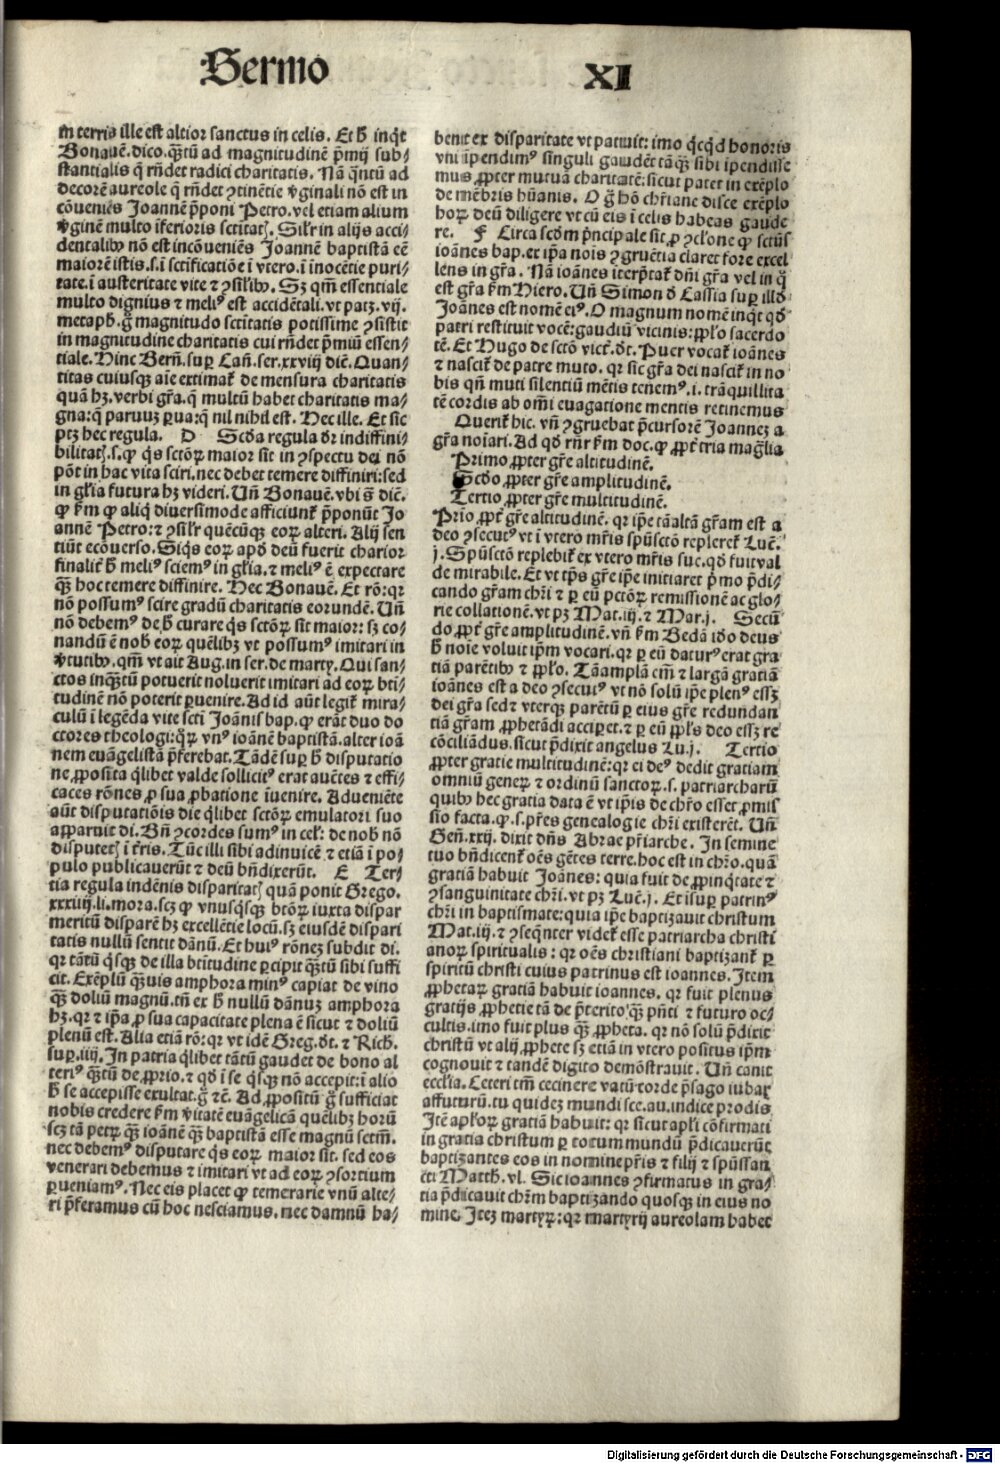 Sermo
XI
in terris ille est altior sanctus in celis. Et ħ inq̄t
Bonauē. dico. q̄ȝtū ad magnitudinē p̄mij sub⸗
stantialis q̄ rn̄det radici charitatis. Nā q̄ntū ad
decorē aureole q̄ rn̄det ꝯtinētie v̄ginali nō est in
cōueniēs Joannē p̄poni Petro. vel etiam alium
v̄ginē multo īferioris sctitatꝭ. Silr̄ in alijs acci⸗
dentalibꝰ nō est incōueniēs Joannē baptistā eē
maiorē istis. s. i sctificatiōe ī vtero. ī inocētie puri⸗
tate. ī austeritate vite ⁊ ꝯsilijs. Sȝ qm̄ essentiale
multo dignius ⁊ meliꝰ est accidētali. vt patȝ. vij.
metaph. g̊ magnitudo sctitatis potissime ꝯsistit
in magnitudine charitatis cui rn̄det p̄miū essen⸗
tiale. Hinc Bern̄. suꝑ Cañ. ser. xxviij dic̄. Quan⸗
titas cuiusqȝ aīe extimat̄ de mensura charitatis
quā hȝ. verbi gr̄a. q̄ multū habet charitatis ma⸗
gna: q̄ paruuȝ parua: q̄ nil nihil est. Hec ille. Et sic
ptȝ hec regula. D Scd̄a regula dr̄ indiffini⸗
bilitatꝭ. s. ꝙ q̄s sctōꝝ maior sit in ꝯspectu dei nō
pōt in hac vita sciri. nec debet temere diffiniri: sed
in gl̄ia futura hȝ videri. Uñ Bonauē. vbi s̄ dic̄.
ꝙ ẜm ꝙ aliq̄ diuersimode afficiunt̄ p̄ponūt Jo
annē Petro: ⁊ ꝯsilr̄ quēcūqȝ eoꝝ alteri. Alij sen
tiūt ecōuerso. Siq̄s eoꝝ apd̄ deū fuerit charior
finalit̄ ħ meliꝰ sciemꝰ in gl̄ia. ⁊ meliꝰ ē expectare
q̄ȝ hoc temere diffinire. Hec Bonauē. Et rō: qꝛ
nō possumꝰ scire gradū charitatis eorundē. Uñ
nō debemꝰ de ħ curare q̄s sctōꝝ sit maior: sȝ co⸗
nandū ē nob̄ eoꝝ quēlibȝ vt possumꝰ imitari in
v̄tutibꝰ. qm̄ vt ait Aug. in ser. de marty. Qui san⸗
ctos inq̄ȝtū potuerit noluerit imitari ad eoꝝ bti⸗
tudinē nō poterit ꝑuenire. Ad id aūt legit̄ mira⸗
culū ī legēda vite scti Joānis bap. ꝙ erāt duo do
ctores theologi: q̄ꝝ vnꝰ ioānē baptistā. alter ioā
nem euāgelistā p̄ferebat. Tādē suꝑ ħ disputatio
ne ꝓposita q̄libet valde sollicitꝰ erat auētes ⁊ effi⸗
caces rōnes ꝓ sua ꝓbatione īuenire. Adueniēte
aūt disputatiōis die q̄libet sctōꝝ emulatori suo
apparuit di. Bn̄ ꝯcordes sumꝰ in cel̄: de nob̄ nō
disputetꝭ ī tr̄is. Tūc illi sibi adinuicē ⁊ etiā ī po⸗
pulo publicauerūt ⁊ deū bn̄dixerūt. E Ter⸗
tia regula indēnis disparitatꝭ quā ponit Grego.
xxxiiij. li. mora. scȝ ꝙ vnusq̄sqȝ btōꝝ iuxta dispar
meritū disparē hȝ excellētie locū. sȝ eiusdē dispari
tatis nullū sentit dānū. Et huiꝰ rōneȝ subdit di.
qꝛ tātū q̄sqȝ de illa btitudine ꝑcipit q̄ȝtū sibi suffi
cit. Exēplū q̄ȝuis amphora minꝰ capiat de vino
q̄ȝ doliū magnū. tn̄ ex ħ nullū dānuȝ amphora
hȝ. qꝛ ⁊ ip̄a ꝓ sua capacitate plena ē sicut ⁊ doliū
plenū est. Alia etiā rō: qꝛ vt idē Greg. dt. ⁊ Rich.
suꝑ. iiij. In patria q̄libet tātū gaudet de bono al
teriꝰ q̄ȝtū de ꝓprio. ⁊ qd̄ ī se q̄sqȝ nō accepit: ī alio
ħ se accepisse exultat. g̊ ⁊c̄. Ad ꝓpositū g̊ sufficiat
nobis credere ẜm v̄itatē euāgelicā quēlibȝ horū
scȝ tā petꝝ q̄ȝ ioānē q̄ȝ baptistā esse magnū sctm̄.
nec debemꝰ disputare q̄s eoꝝ maior sit. sed eos
venerari debemus ⁊ imitari vt ad eoꝝ ꝯsortium
ꝑueniamꝰ. Nec eis placet ꝙ temerarie vnū alte⸗
ri p̄feramus cū hoc nesciamus. nec damnū ha⸗
benit ex disparitate vt patuit: imo q̄cq̄d honoris
vni īpendimꝰ singuli gaudēt tāq̄ȝ sibi īpendisse
mus ꝓpter mutuā charitatē: sicut patet in exēplo
de mēbris hūanis. O g̊ hō chr̄iane disce exēplo
hoꝝ deū diligere vt cū eis ī celis habeas gaude
re. F Circa scd̄m p̄ncipale sit ꝓ ꝯclone ꝙ sctūs
ioānes bap. ex ip̄a nois ꝯgruētia claret fore excel
lens in gr̄a. Nā ioānes īterp̄tat̄ dn̄i gr̄a vel in q̄
est gr̄a ẜm Hiero. Uñ Simon d̄ Cassia suꝑ illd̄.
Joānes est nomē eiꝰ. O magnum nomē inq̄t qd̄
patri restituit vocē: gaudiū vicinis: ꝓplo sacerdo
tē. Et Hugo de sctō vict. dt. Puer vocat̄ ioānes
⁊ nascit̄ de patre muto. qꝛ sic gr̄a dei nascit̄ in no
bis qn̄ muti silentiū mētis tenemꝰ. i. trāquillita
tē cordis ab om̄i euagatione mentis retinemus
Querit̄ hic. vn̄ ꝯgruebat p̄cursorē Joanneȝ a
gr̄a noiari. Ad qd̄ rn̄r ẜm doc. ꝙ ꝓpt̄ tria mag̃lia
Primo ꝓpter gr̄e altitudinē.
Scd̄o ꝓpter gr̄e amplitudinē.
Tertio ꝓpter gr̄e multitudinē.
Prīo ꝓpt̄ gr̄e altitudinē. qꝛ ip̄e tā altā gr̄am est a
deo ꝯsecutꝰ vt ī vtero mr̄is spūsctō repleret̄ Luc̄.
j. Spūsctō replebit̄ ex vtero mr̄is sue. qd̄ fuit val
de mirabile. Et vt tp̄s gr̄e ip̄e initiaret p̄mo p̄di⸗
cando gr̄am chr̄i ⁊ ꝑ eū pctōꝝ remissionē ac glo⸗
rie collationē. vt pȝ Mat. iij. ⁊ Mar. j. Secū⸗
do ꝓpt̄ gr̄e amplitudinē. vn̄ ẜm Bedā id̄o deus
ħ noie voluit ip̄m vocari. qꝛ ꝑ eū daturꝰ erat gra
tiā parētibꝰ ⁊ ꝓplo. Tā amplā em̄ ⁊ largā gratiā
ioānes est a deo ꝯsecutꝰ vt nō solū ip̄e plenꝰ esset
dei gr̄a sed ⁊ vterqȝ parētū ꝑ eius gr̄e redundan
tiā gr̄am ꝓphetādi acciꝑet. ⁊ ꝑ eū ꝓpl̄s deo esset re
cōciliādus. sicut p̄dixit angelus Lu. j. Tertio
ꝓpter gratie multitudinē: qꝛ ei deꝰ dedit gratiam
omniū generū ⁊ ordinū sanctoꝝ. s. patriarcharū
quibꝰ hec gratia data ē vt ip̄is de chr̄o esset ꝓmis
sio facta. ꝙ. s. p̄res genealogie chr̄i existerēt. Uñ
Gen̄. xxij. dixit dn̄s Abrae pr̄iarche. In semine
tuo bn̄dicent̄ oēs gētes terre. hoc est in chr̄o. quā
gratiā habuit Joānes: quia fuit de ꝓpinq̄tate ⁊
ꝯsanguinitate chr̄i. vt pȝ Luc̄. j. Et īsuꝑ patrinꝰ
chr̄i in baptismate: quia ip̄e baptizauit christum
Mat. iij. ⁊ ꝯseq̄nter videt̄ esse patriarcha christi
anoꝝ spiritualis: qꝛ oēs christiani baptizant̄ ꝑ
spiritū christi cuius patrinus est ioannes. Item
ꝓphetaꝝ gratiā habuit ioannes. qꝛ fuit plenus
gratijs ꝓphetie tā de p̄terito q̄ȝ pn̄ti ⁊ futuro oc⸗
cultis. imo fuit plus q̄ȝ ꝓpheta. qꝛ nō solū p̄dixit
christū vt alij ꝓphete sȝ etiā in vtero positus ip̄m
cognouit ⁊ tandē digito demōstrauit. Uñ canit
eccl̄ia. Ceteri tm̄ cecinere vatū corde p̄sago iubaꝛ
affuturū. tu quideȝ mundi sce. au. indice prodis
Itē apl̄oꝝ gratiā habuit: qꝛ sicut apl̄i cōfirmati
in gratia christum ꝑ totum mundū p̄dicauerūt
baptizantes eos in nomine pr̄is ⁊ filij ⁊ spūssan
cti Matth. vl. Sic ioannes ꝯfirmatus in gra⸗
tia p̄dicauit chr̄m baptizando quosqȝ in eius no
mine. Iteȝ martyꝝ: qꝛ martyrij aureolam habet
Digitalisierung gefördert durch die Deutsche Forschungsgemeinschaft - DFG